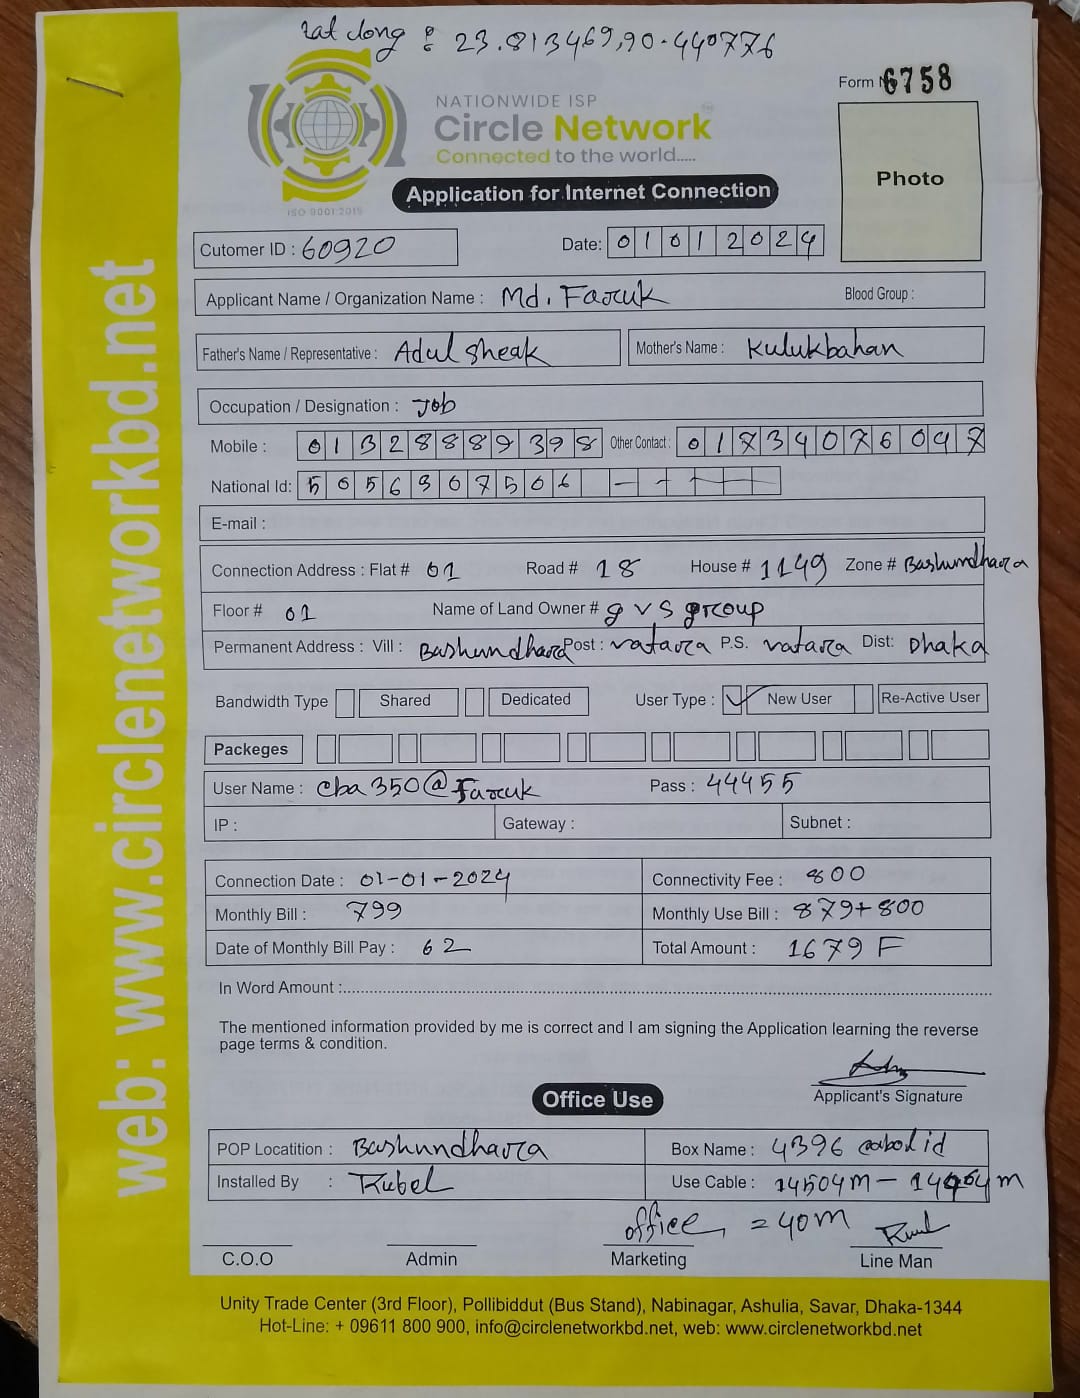 Lat Long : 23.813469,90.440776
Form N 6758
NATIONWIDE ISP
Circle Network
Connected to the world.....
ISO 9001:2015
Application for Internet Connection
Photo
Cutomer ID : 60920 Date: 01012024
Applicant Name / Organization Name : Md. Faruk Blood Group :
Father's Name / Representative : Adul Sheak Mother's Name : Kulukbahan
Occupation / Designation : Job
Mobile : 01328889398 Other Contact : 01734076047
National Id: 5056367506
E-mail :
Connection Address : Flat # 01 Road # 18 House # 1149 Zone # Bashundhara
Floor # 01 Name of Land Owner # g v s group
Permanent Address : Vill : Bashundhara Post : vatara P.S. vatara Dist: Dhaka
Bandwidth Type Shared Dedicated User Type : New User Re-Active User
Packeges
User Name : cba350@Faruk Pass : 44455
IP : Gateway : Subnet :
Connection Date : 01-01-2024 Connectivity Fee : 800
Monthly Bill : 799 Monthly Use Bill : 879+800
Date of Monthly Bill Pay : 62 Total Amount : 1679 F
In Word Amount :
The mentioned information provided by me is correct and I am signing the Application learning the reverse
page terms & condition.
Applicant's Signature
Office Use
POP Locatition : Bashundhara Box Name : 4396 id
Installed By : Rubel Use Cable : 14504m - m
office = 40m
C.O.O Admin Marketing Line Man
Unity Trade Center (3rd Floor), Pollibiddut (Bus Stand), Nabinagar, Ashulia, Savar, Dhaka-1344
Hot-Line: + 09611 800 900, info@circlenetworkbd.net, web: www.circlenetworkbd.net
web: www.circlenetworkbd.net